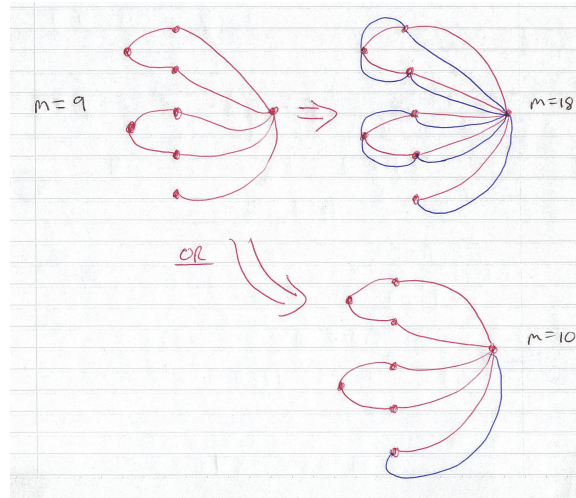 m=9
m=18
OR
m=10